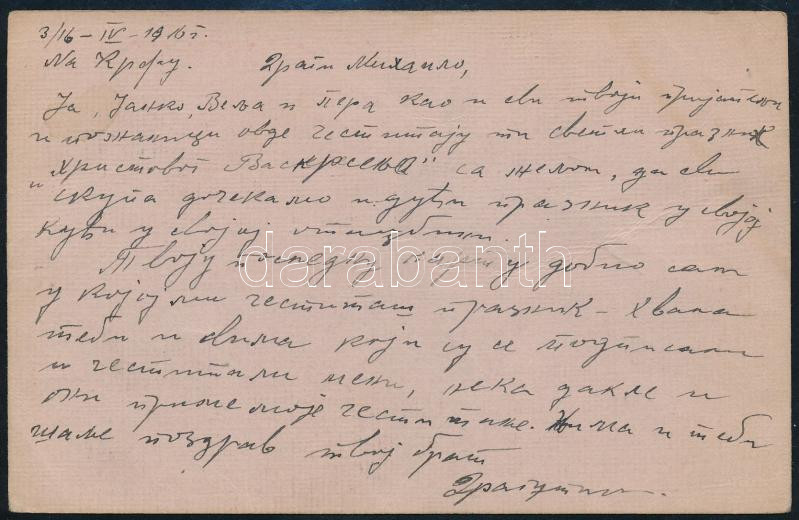 3/16-IV-1916 г.
На Крфу. Драги Михаило,
Ја, Јанко, Веља и Пера као и сви твоји пријатељи
и познаници овде честитају ти светли празник
„Христовог Васкрсења“ са жељом, да сви
скупа дочекамо идући празник у својој
кући у својој отаџбини.
Твоју последњу карту добио сам
у којој ми честиташ празник - Хвала
теби и свима који су се потписали
и честитали мени, нека дакле и
они приме моје честитање. Њима и теби
шаље поздрав твој брат
Драгутин.
darabanth